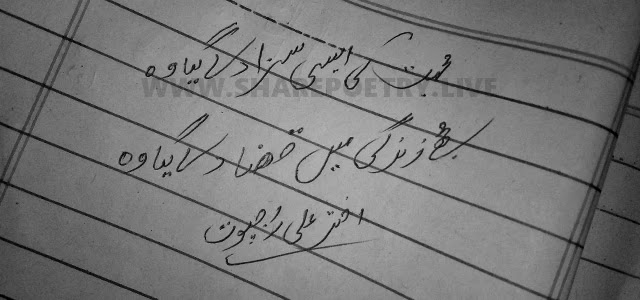 محبت کی ایسی سزا دے گیا وہ
WWW.SHAREPOETRY.LIVE
مجھے زندگی میں قضا دے گیا وہ
علی راجپوت